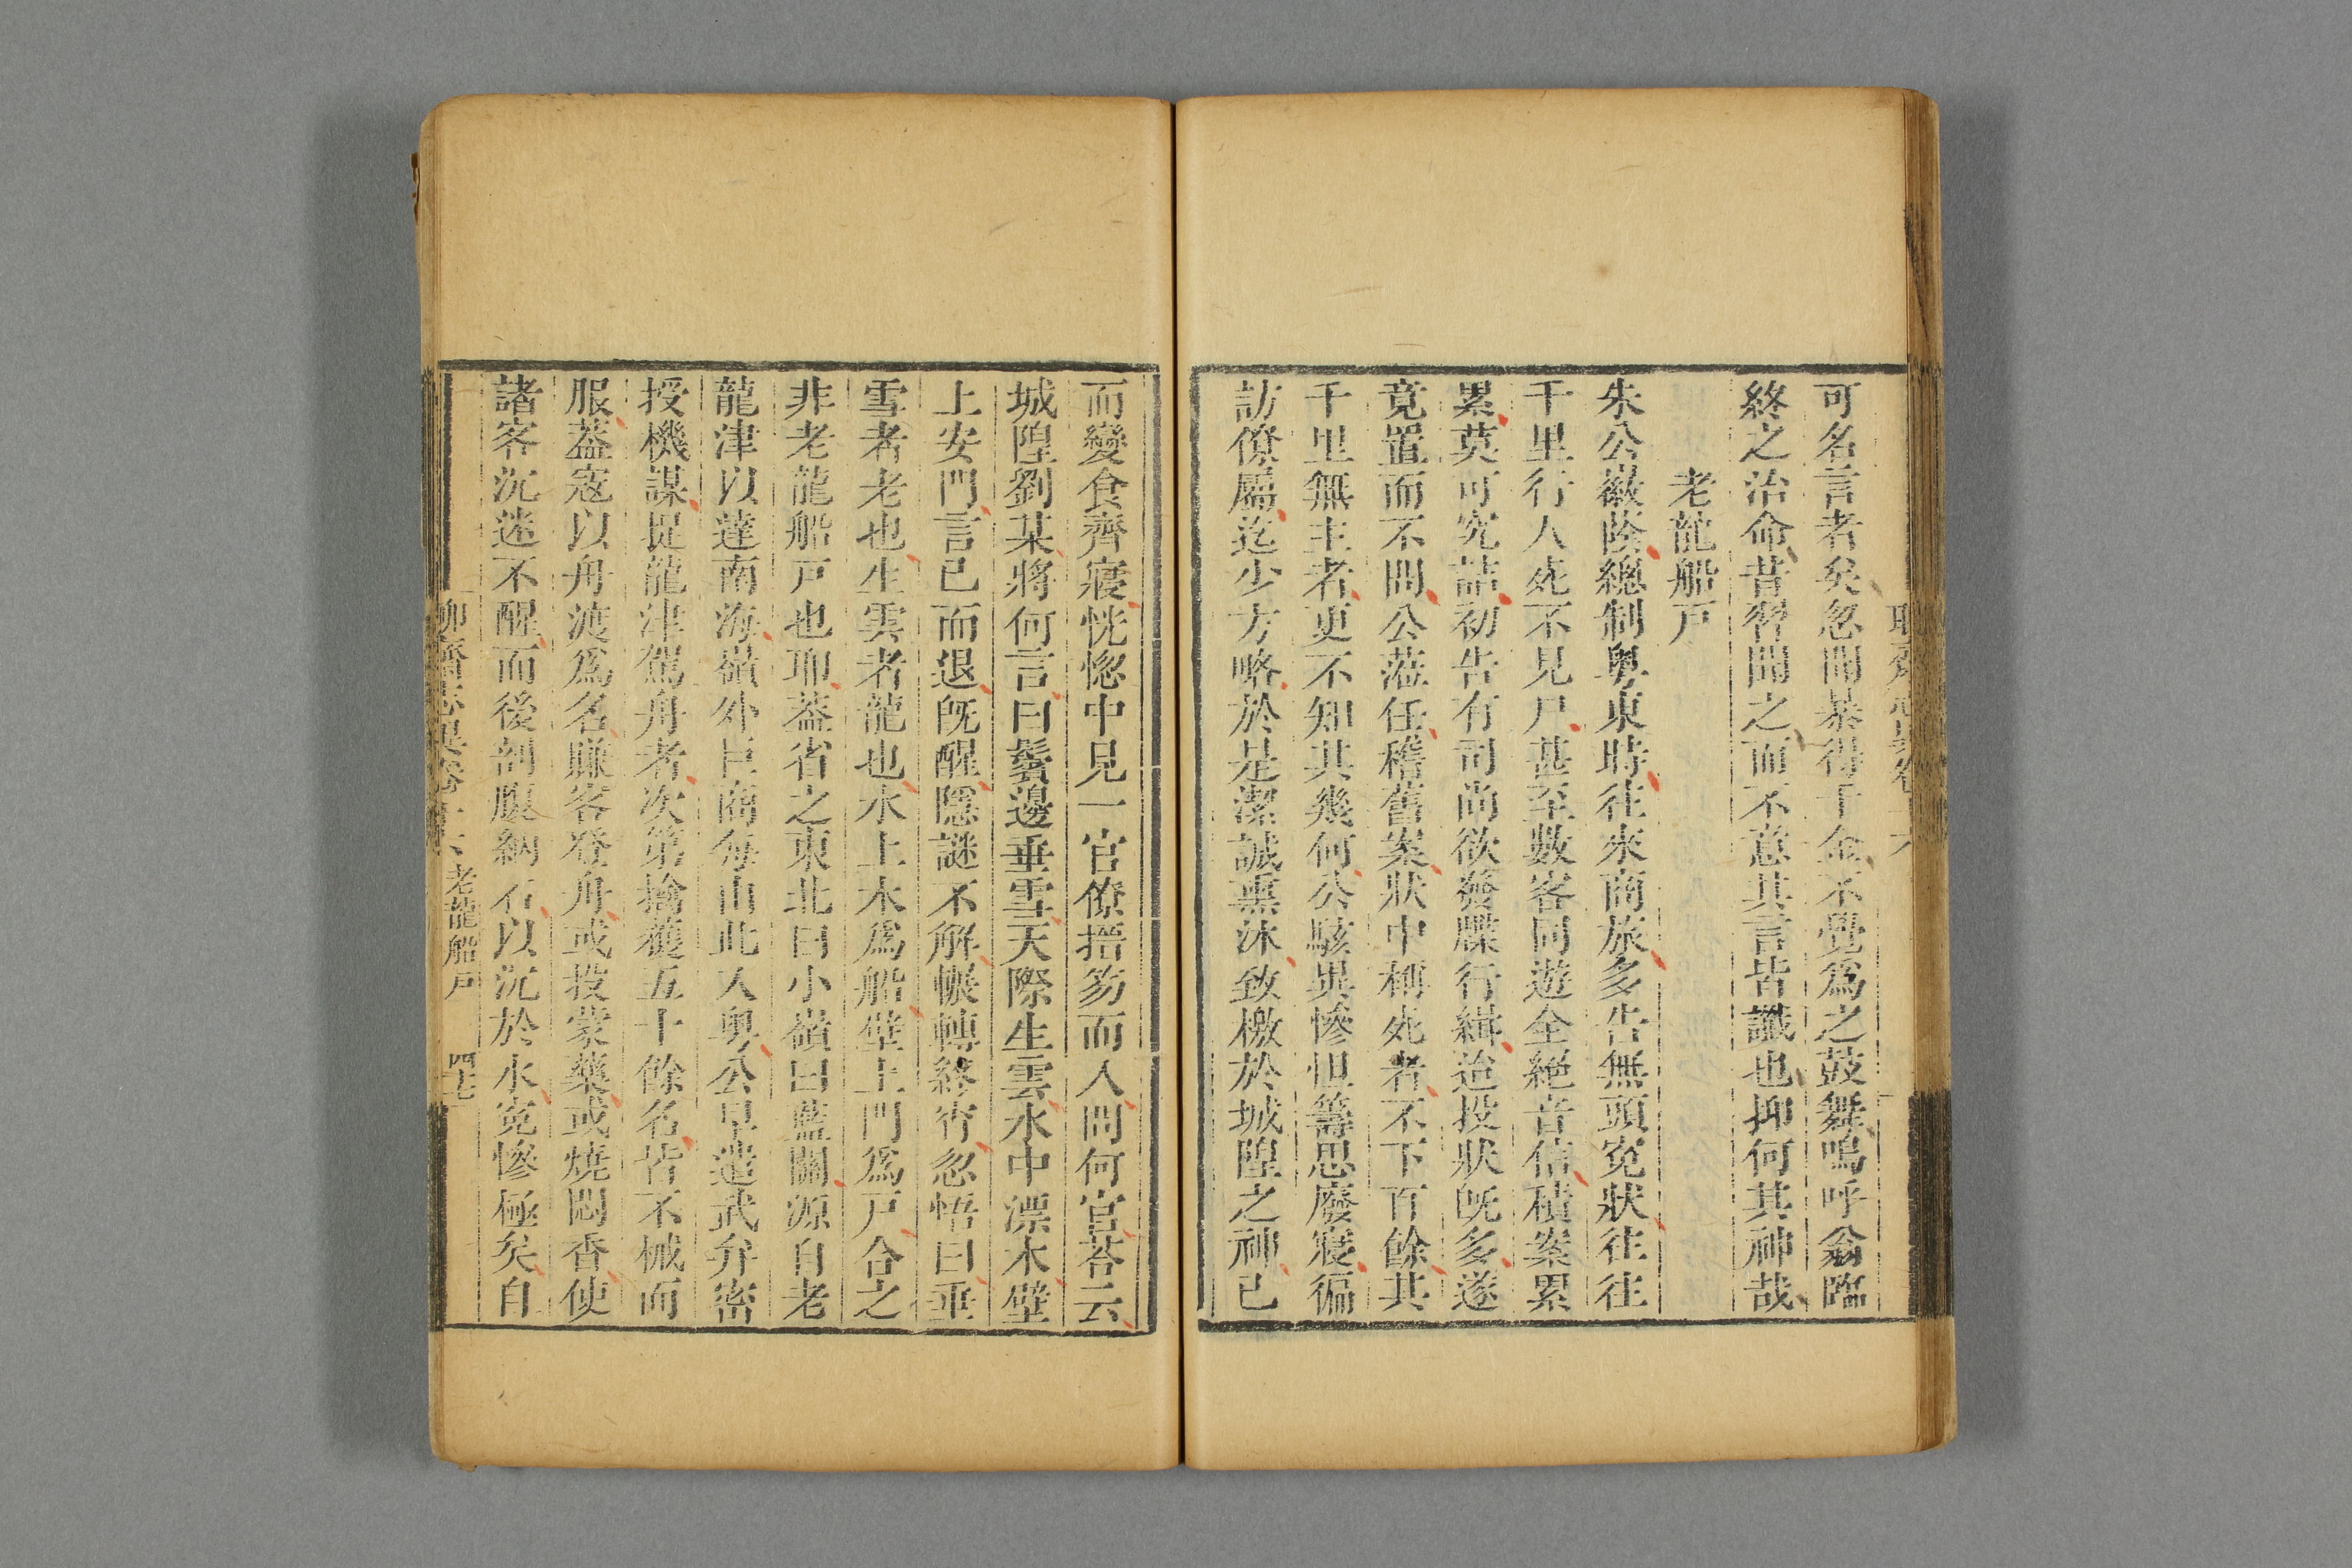 可名言者矣忽聞暴得千金不覺爲之鼓舞嗚呼翁臨
終之治命昔習聞之而不意其言皆讖也抑何其神哉
老龍船戸
朱公徽蔭總制粤東時往來商旅多告無頭冤狀往往
千里行人死不見尸甚至數客同遊全絕音信積案累
累莫可究詰初告有司尚欲發牒行緝迨投狀既多遂
竟置而不問公蒞任稽舊案狀中稱死者不下百餘其
千里無主者更不知其幾何公駭異慘怛籌思廢寢徧
訪僚屬迄少方略於是潔誠熏沐致檄於城隍之神已
而變食齊寢恍惚中見一官僚搢笏而入問何官荅云
城隍劉某將何言曰鬢邊垂雪天際生雲水中漂木壁
上安門言已而退既醒隱謎不解輾轉終宵忽悟曰垂
雪者老也生雲者龍也水上木爲船壁上門爲戸合之
非老龍船戸也耶蓋省之東北曰小嶺曰藍關源自老
龍津以達南海嶺外巨商每由此入粤公早遣武弁密
授機謀捉龍津駕舟者次第擒獲五十餘名皆不械而
服蓋寇以舟渡爲名賺客登舟或投蒙藥或燒悶香使
諸客沉迷不醒而後剖腹納石以沉於水冤慘極矣自
老龍船戸 四七